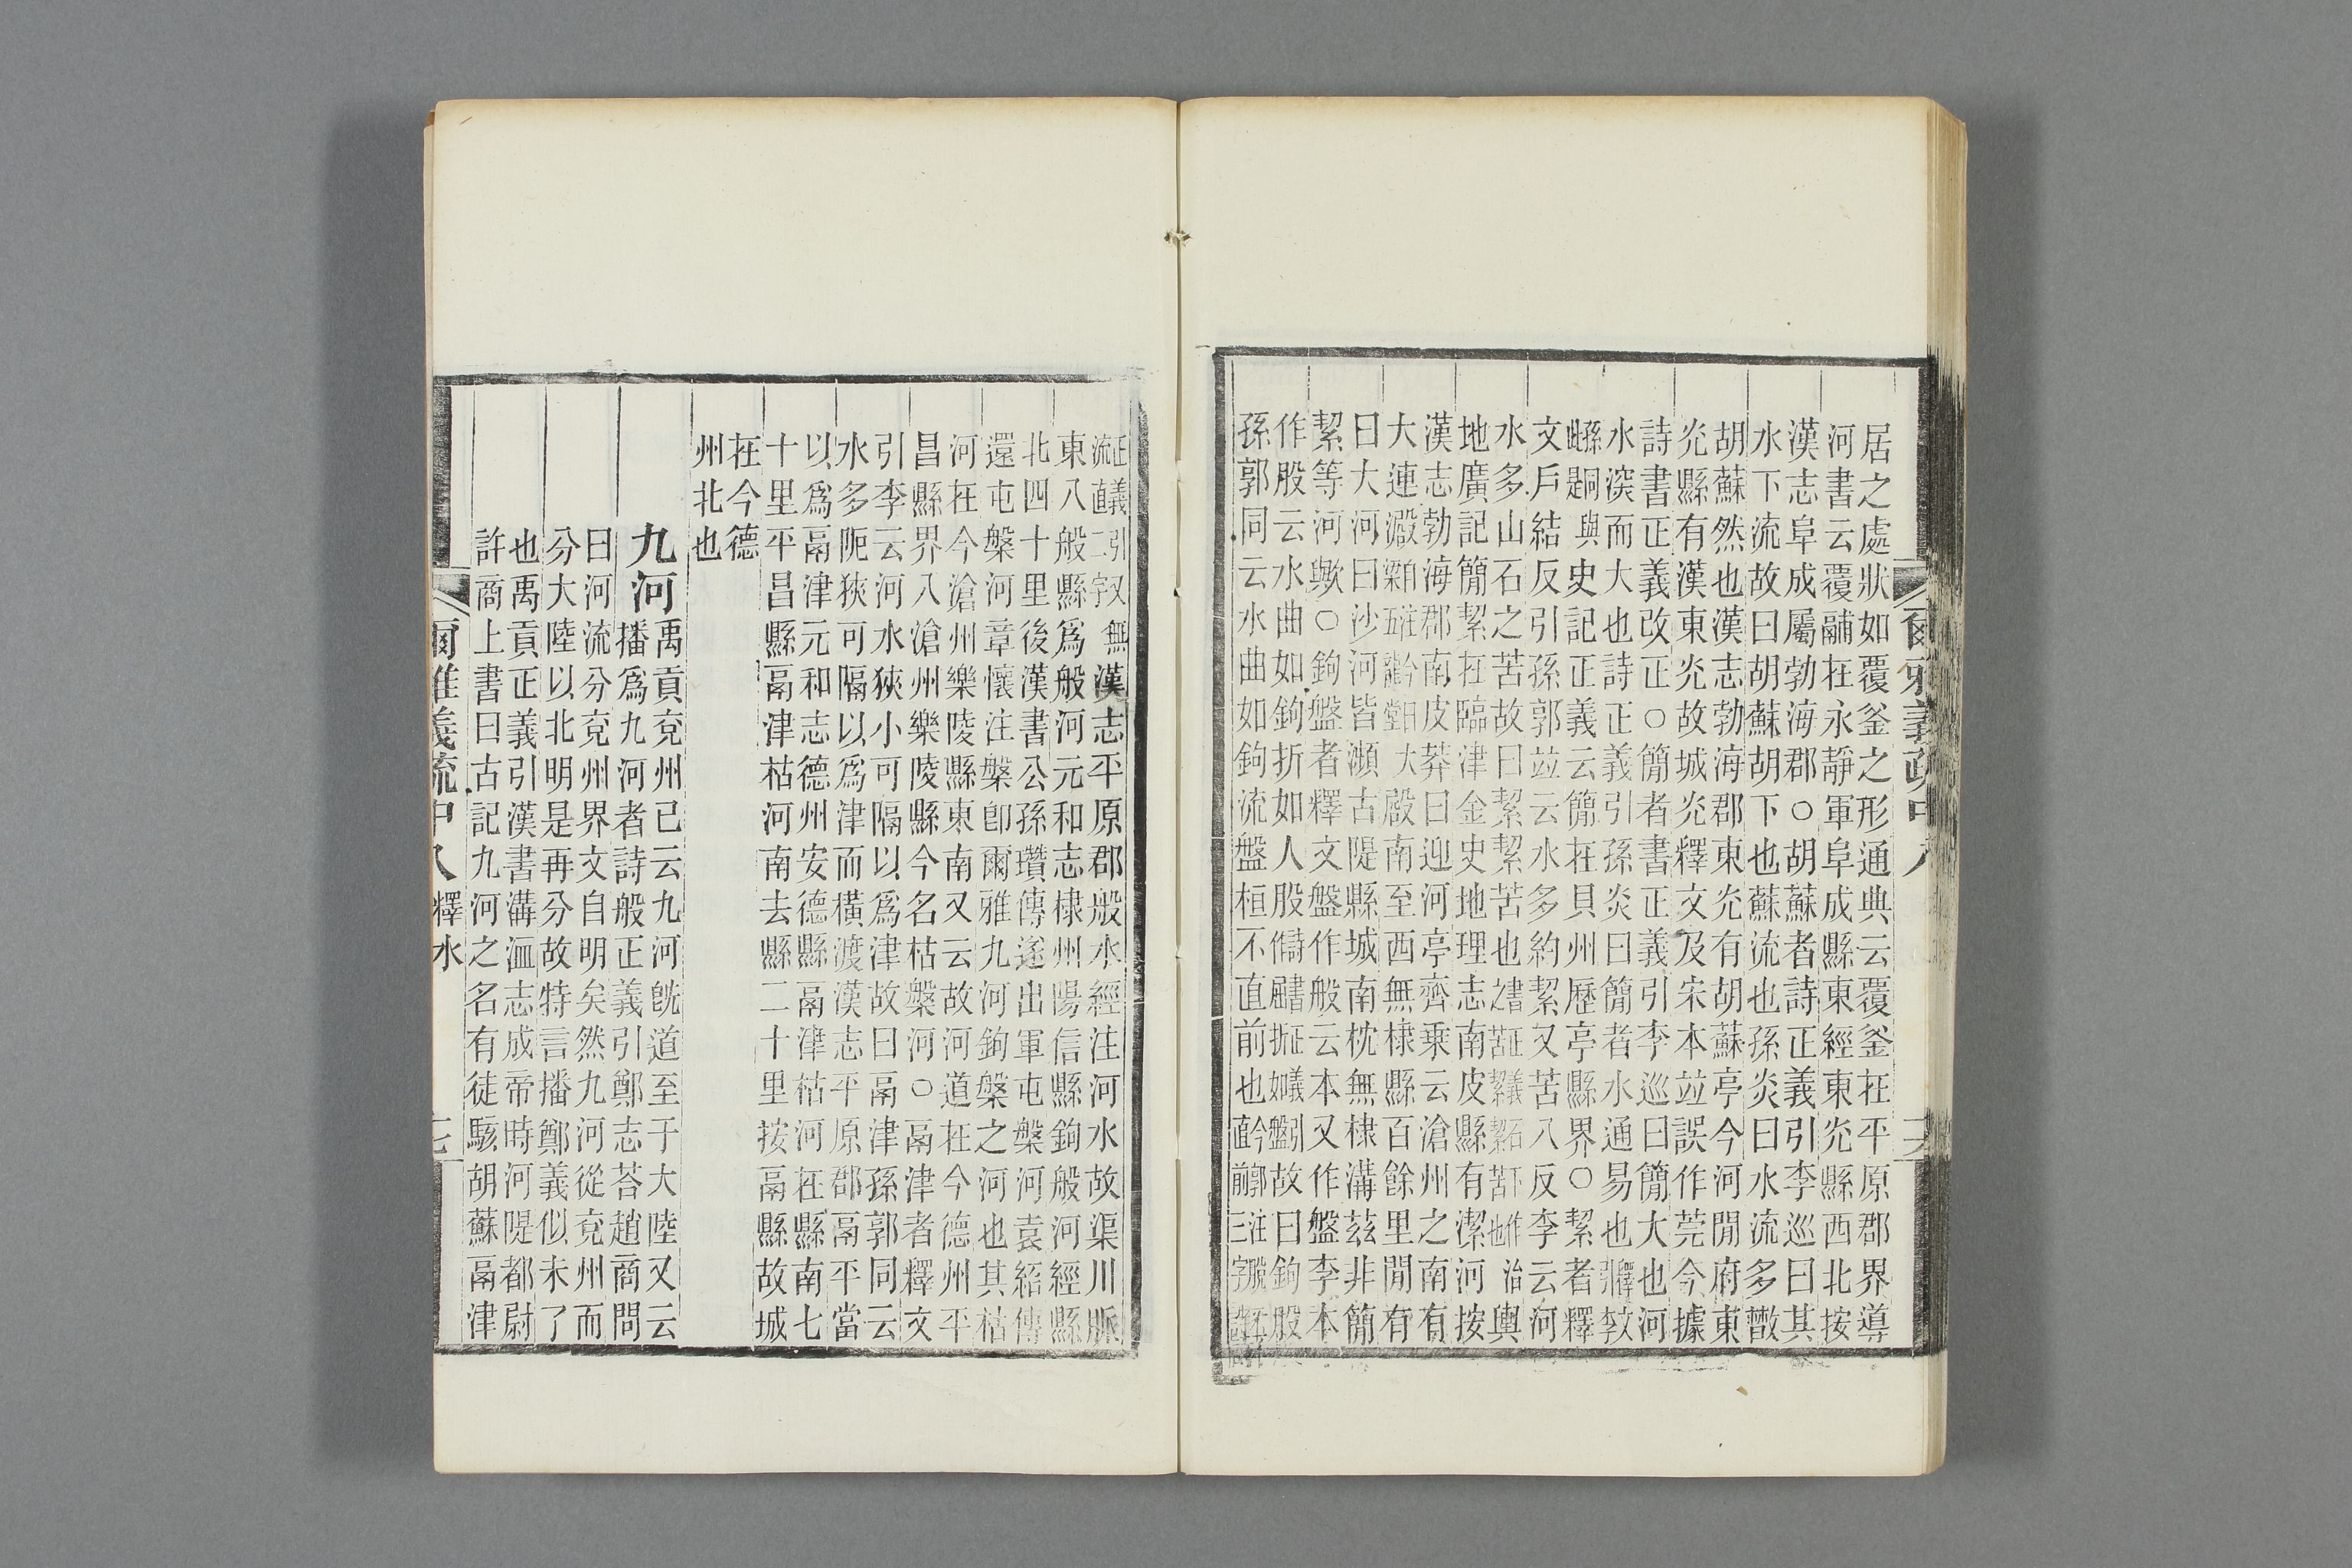 居之處狀如覆釜之形通典云覆釜在平原郡界導
河書云覆鬴在永靜軍阜成縣東經東光縣西北按
漢志阜成屬勃海郡○胡蘇者詩正義引李巡曰其
水下流故曰胡蘇胡下也蘇流也孫炎曰水流多散
胡蘇然也漢志勃海郡東光有胡蘇亭今河閒府東
光縣有漢東光故城光釋文及宋本竝誤作莞今據
詩書正義改正○簡者書正義引李巡曰簡大也河
水深而大也詩正義引孫炎曰簡者水通易也
史記正義云簡在貝州歷亭縣界○絜者釋
文戶結反引孫郭竝云水多約絜又苦八反李云河
水多山石之苦故曰絜絜苦也書正義石下作治之苦絜絜苦也輿
地廣記簡絜在臨津金史地理志南皮縣有潔河按
漢志勃海郡南皮莽曰迎河亭齊乘云滄州之南有
大連澱大殿南至西無棣縣百餘里閒有
曰大河曰沙河皆瀕古隄縣城南枕無棣溝茲非簡
絜等河歟○鉤盤者釋文盤作般云本又作盤李本
作般云水曲如鉤折如人股故曰鉤股
孫郭同云水曲如鉤流盤桓不直前也今郭注脫直前三字
漢志平原郡般水經注河水故渠川脈
東八般縣爲般河元和志棣州陽信縣鉤般河經縣
北四十里後漢書公孫瓚傳遂出軍屯槃河袁紹傳
還屯槃河章懷注槃卽爾雅九河鉤槃之河也其枯
河在今滄州樂陵縣東南又云故河道在今德州平
昌縣界八滄州樂陵縣今名枯槃河○鬲津者釋文
引李云河水狹小可隔以爲津故曰鬲津孫郭同云
水多阨狹可隔以爲津而橫渡漢志平原郡鬲平當
以爲鬲津元和志德州安德縣鬲津枯河在縣南七
十里平昌縣鬲津枯河南去縣二十里按鬲縣故城
在今德
州北也
九河禹貢兗州已云九河旣道至于大陸又云
播爲九河者詩般正義引鄭志荅趙商問
曰河流分兗州界文自明矣然九河從兗州而
分大陸以北明是再分故特言播鄭義似未了
也禹貢正義引漢書溝洫志成帝時河隄都尉
許商上書曰古記九河之名有徒駭胡蘇鬲津
爾雅義疏中八 釋水